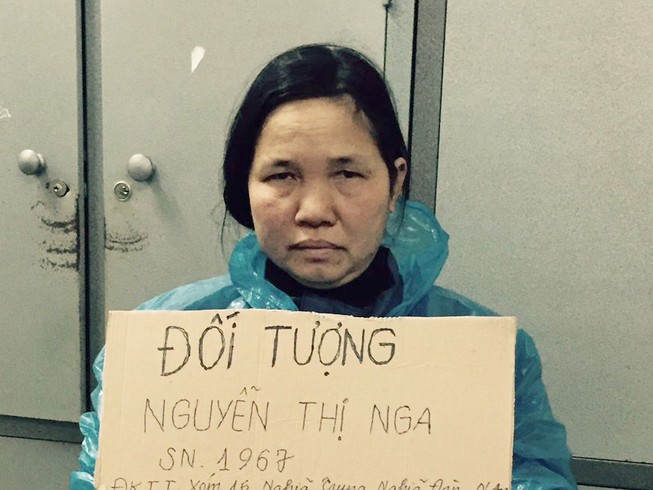 ĐỐI TƯỢNG
NGUYỄN THỊ NGA
SN. 1967
ĐKTT Xóm 15 Nghĩa Trung Nghĩa Đàn